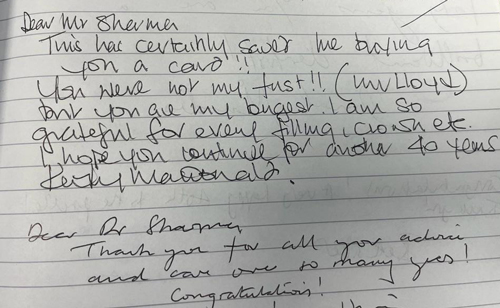 Dear Mr Sharma
This has certainly saved me buying
you a card!!
You were not my first!! (Mr Lloyd)
but you are my longest. I am so
grateful for every filling, crown etc.
I hope you continue for another 40 years
Dear Dr Sharma,
Thank you for all your advice
and care over so many years!
Congratulations!